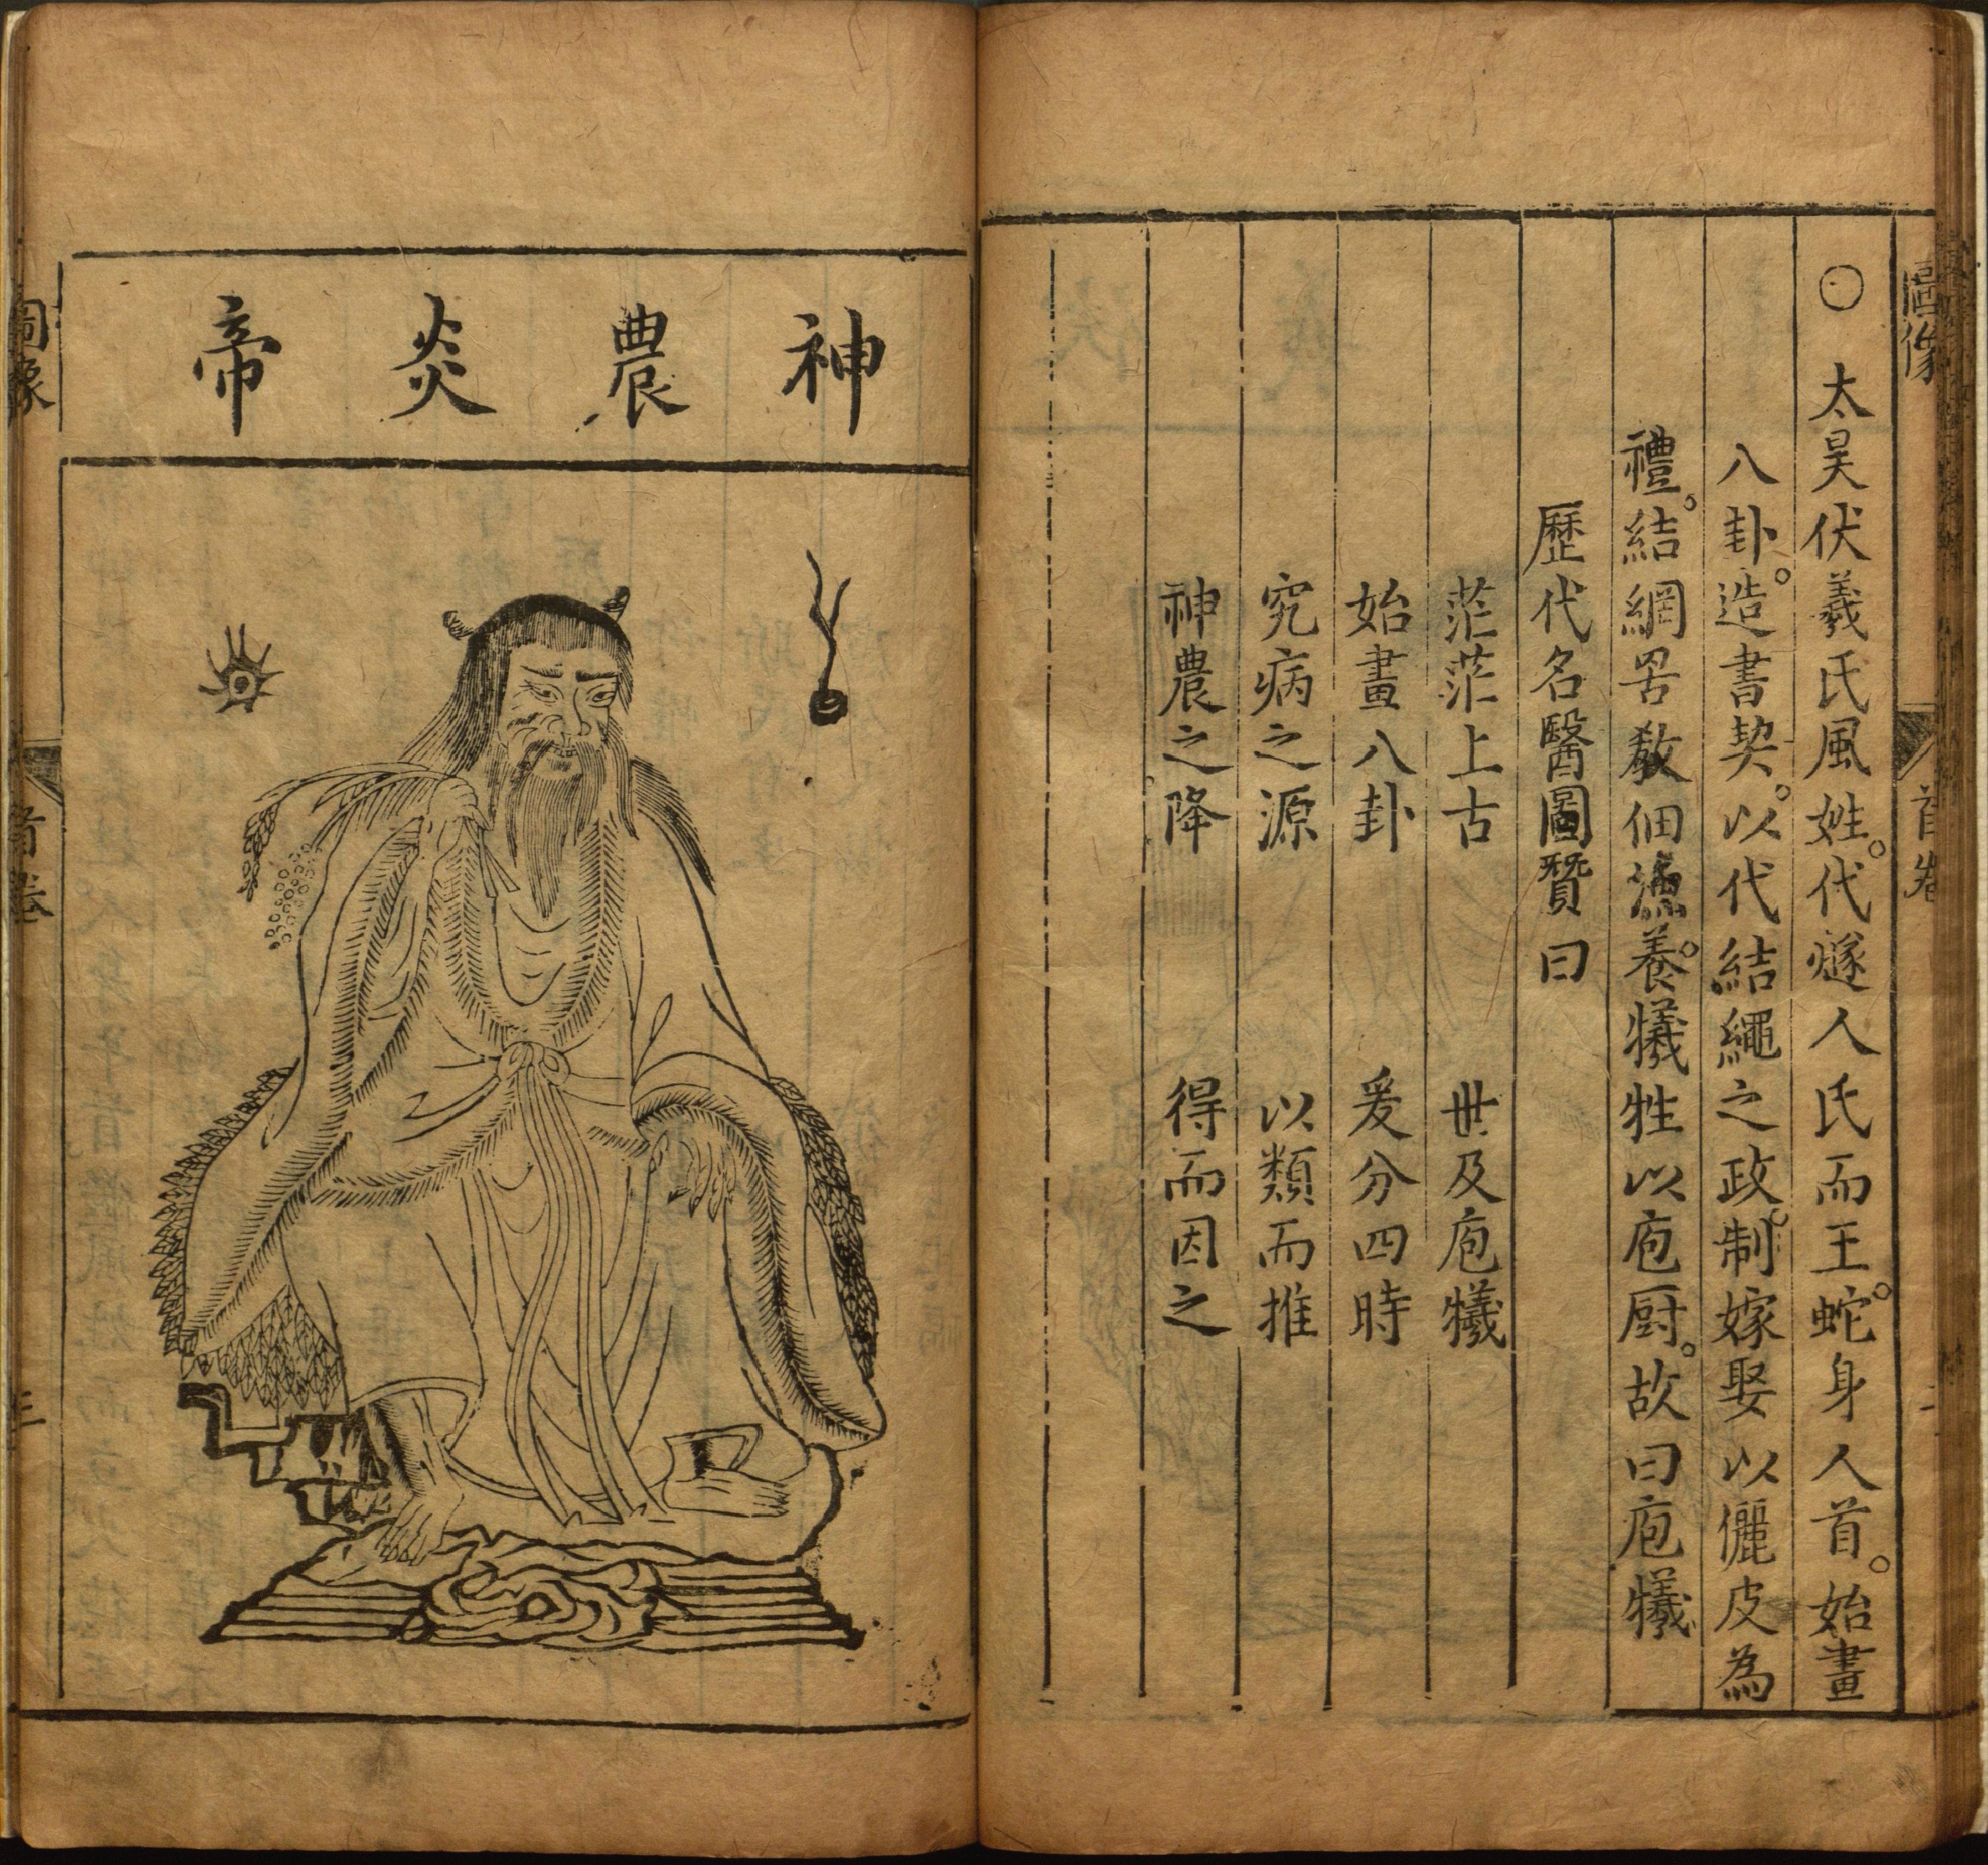 圖像 首卷
○ 太昊伏羲氏風姓。代燧人氏而王。蛇身人首。始畫
八卦。造書契。以代結繩之政。制嫁娶以儷皮為
禮。結網罟教佃漁。養犧牲以庖厨。故曰庖犧
歷代名醫圖贊曰
茫茫上古 世及庖犧
始畫八卦 爰分四時
究病之源 以類而推
神農之降 得而因之
神農炎帝
圖像 首卷 三